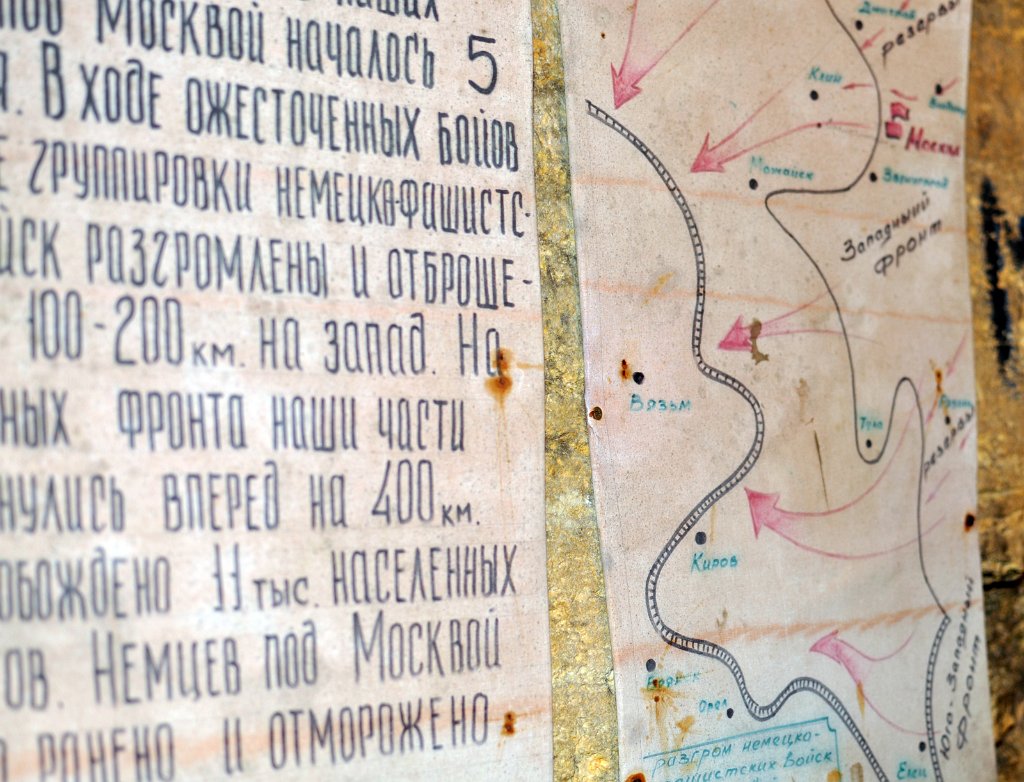 под Москвой началось 5
я. В ходе ожесточенных бойов
е группировки немецко-фашистс-
йск разгромлены и отброше-
100-200 км. на запад. На
ных фронта наши части
нулись вперед на 400 км.
обождено 11 тыс. населенных
ов. Немцев под Москвой
и отморожено
Дмитров
резервы
Клин
Москва
Можайск
Звенигород
Западный
фронт
Вязьм
Тула
Рязань
резервы
Киров
Орел
Юго-Западный
фронт
Елец
разгром немецко-
ашистских войск